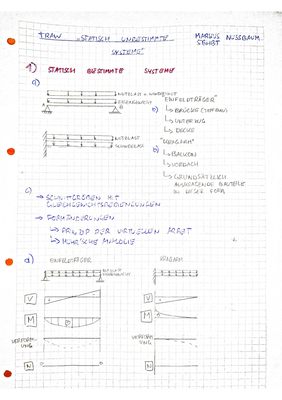 TRAW "STATISCH UNBESTIMMTE SYSTEME"
MARKUS NUSSBAUM
1) STATISCH BESTIMMTE SYSTEME
a)
A
B
EIGENGEWICHT
NUTZLAST
b) "EINFELDTRÄGER"
↳ BRÜCKE (TIEFBAU)
↳ UNTERZUG
↳ DECKE
"KRAGARM"
b) ↳ BALKON
↳ VORDACH
↳ GRUNDSÄTZLICH
AUSKRAGENDE BAUTEILE
IN DIESER FORM
c) → SCHNITTGRÖßEN MIT
GLEICHGEWICHTSBEDINGUNGEN
→ FORMÄNDERUNGEN
↳ PRINZIP DER VIRTUELLEN ARBEIT
↳ MOHR'SCHE ANALOGIE
d) EINFELDTRÄGER
KRAGARM
V
V
M
M
VERFORM
UNG
VERFORM
UNG
N
N